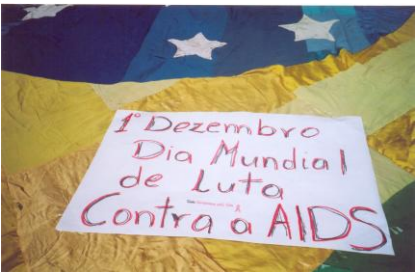 1º Dezembro
Dia Mundial
de Luta
Contra a AIDS